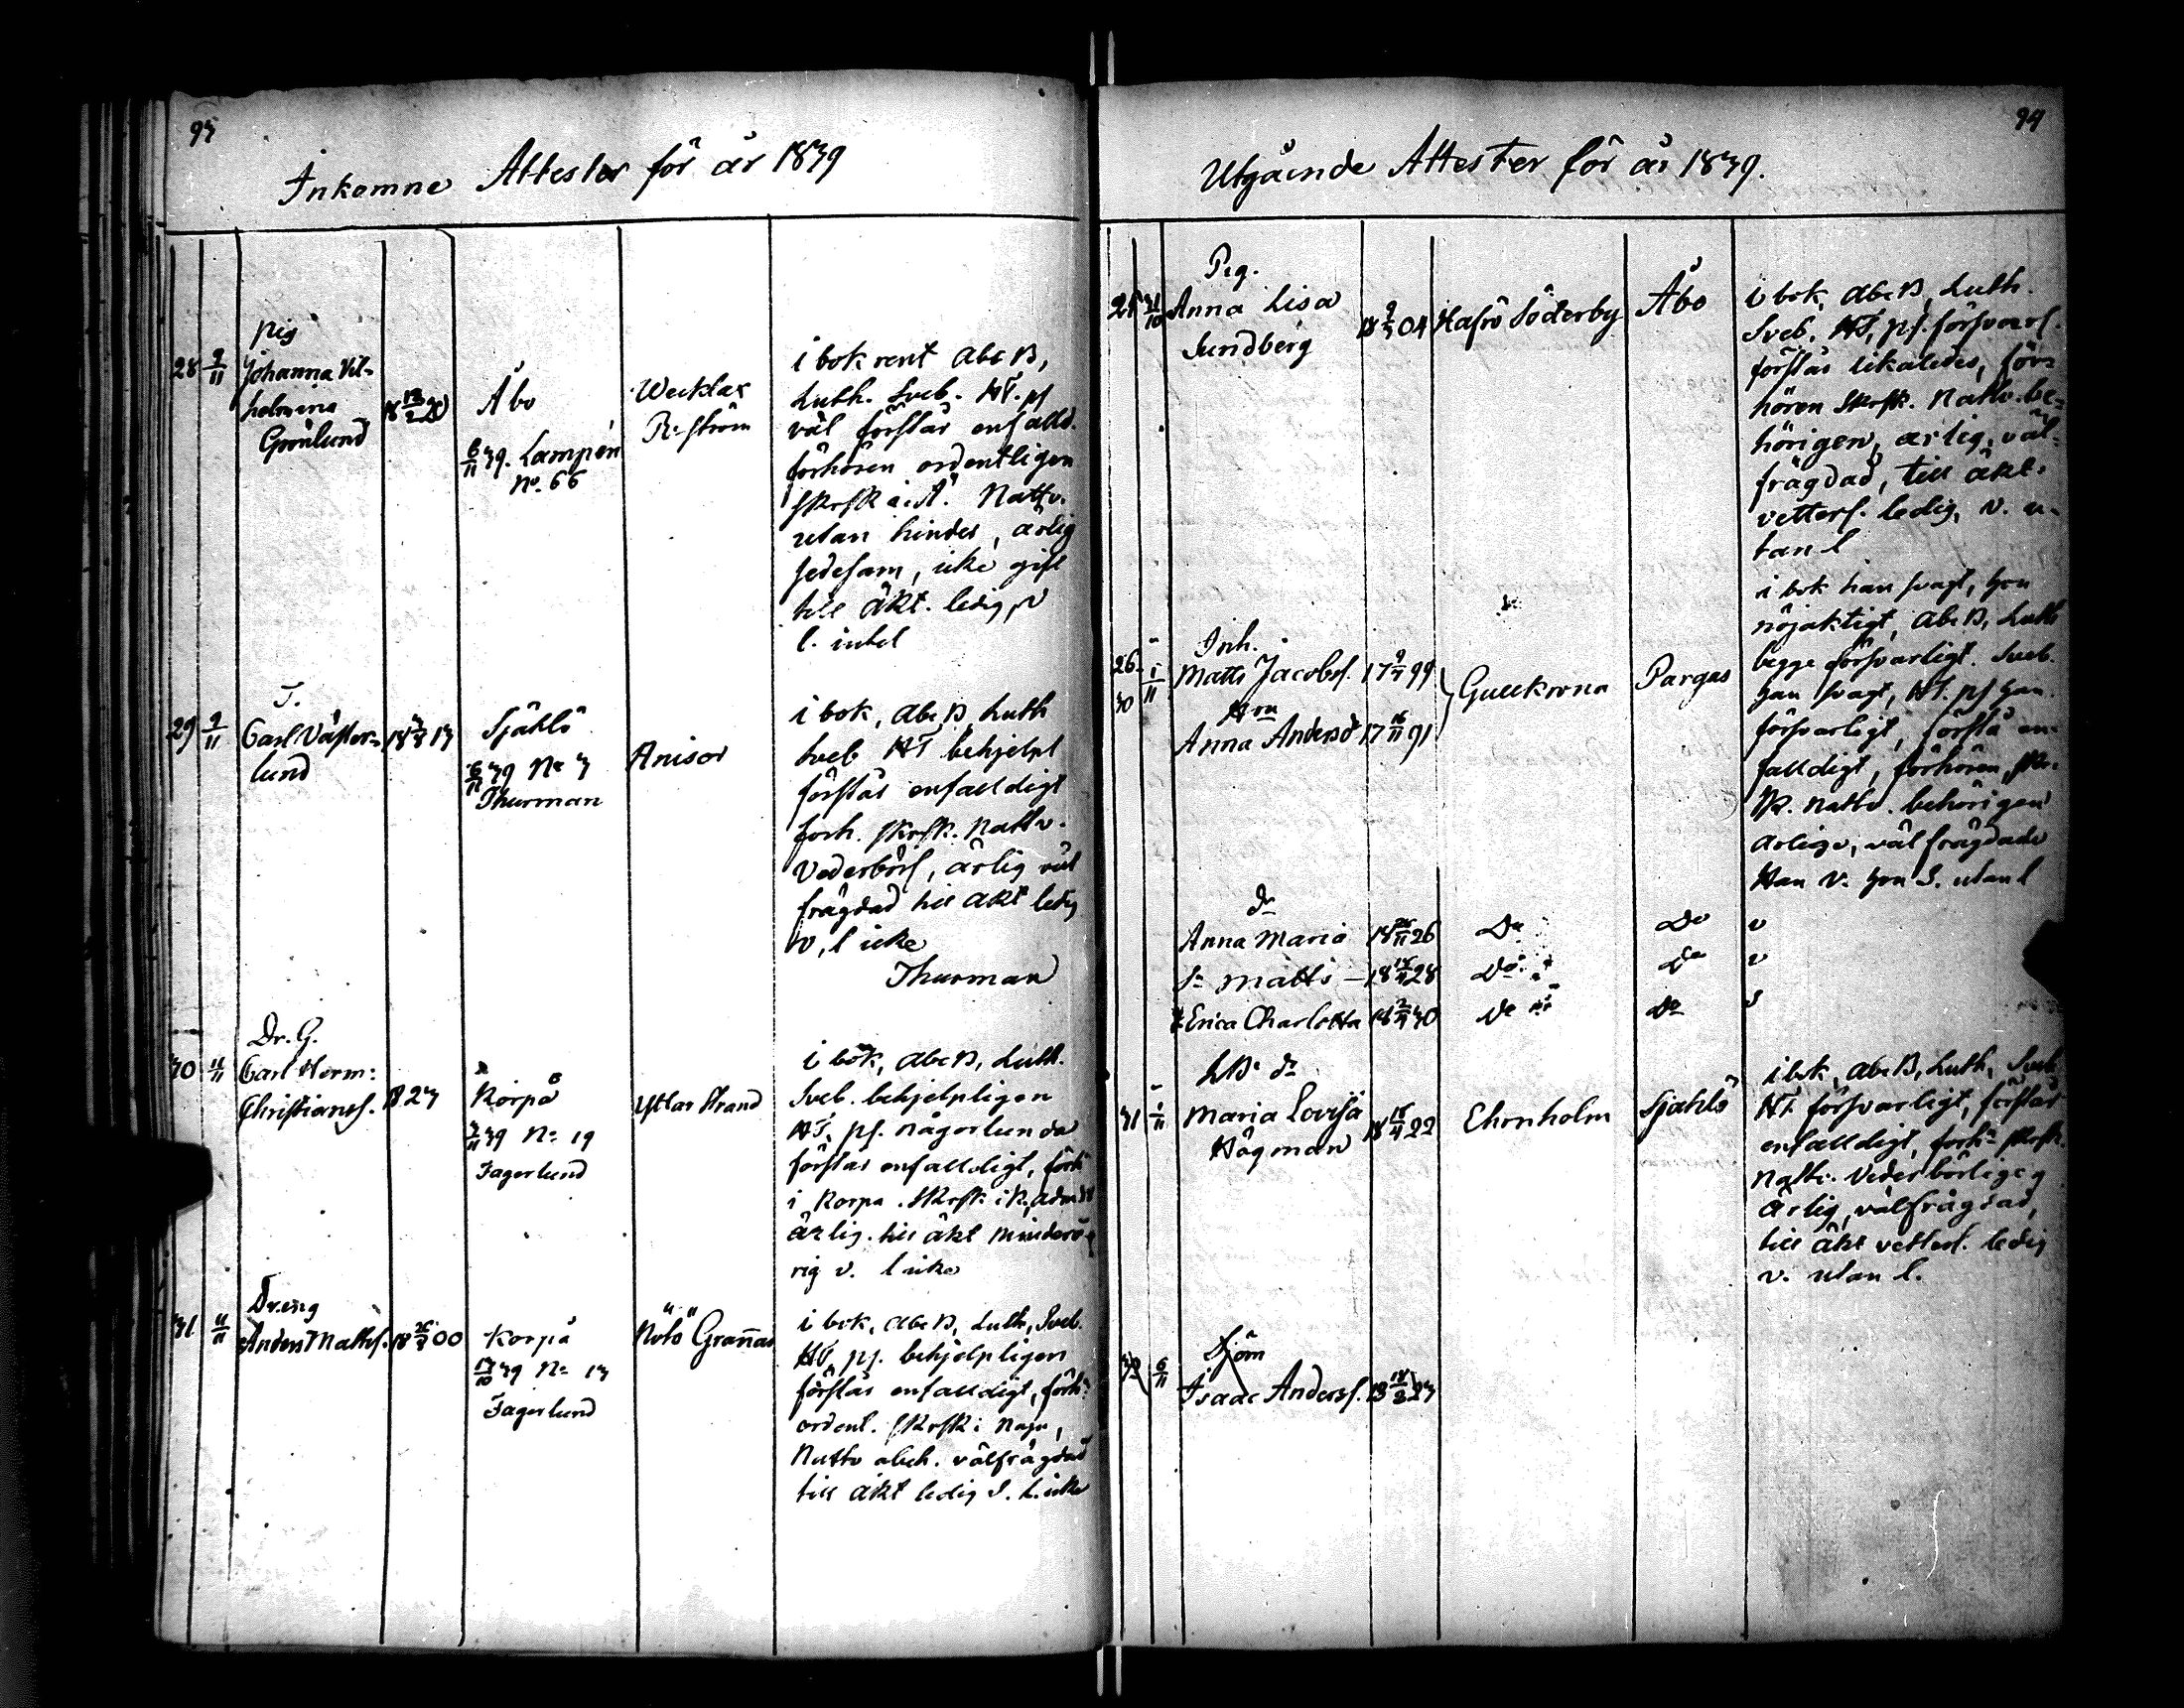 93
Inkomne Attester för år 1839
pig
28 9/11 Johanna Vil-
helmina
Grönlund
18 13/2 20
Åbo
6/11 39. Lampén
No. 66
Wecklax
i bok rent Abc B,
Luth. Sveb. HT. ps
väl förstår enfald.
förhören ordentligen
Nattv.
utan hinder, ärlig
sedesam, icke gift
till äkt. ledig, v
l. intet
T.
29 9/11 Carl Väster-
lund
Själö
6/11 39 No 3
Thurman
Anisor
i bok, Abc B, Luth
Sveb HT behjelpl
förstår enfalldigt
förh. skrsk. Nattv.
Vederbörl, ärlig väl
frägdad till äkt ledig
v, l icke
Thurman
Dr. G.
30 11/11 Carl Herm:
Christianss. 1823
Korpo
3/11 39 No 19
Fagerlund
Yttar Strand
i bok, Abc B, Luth.
Sveb. behjelpligen
HT, ps. någorlunda
förstår enfalldigt, förh
i Korpo. Skrsk i
ärlig. till äkt minderå
rig v. l icke
Dreng
31 11/11 Anders Mattss. 18 26/3 00
Korpå
13/10 39 No 13
Fagerlund
Nötö Grannas
i bok, Abc B, Luth, Sveb.
HT, ps. behjelpligen
förstår enfalldigt, förh:
ordent. skrsk i Nagu,
Nattv obeh. välfrägdad
till äkt ledig S. l. icke
94
Utgående Attester för år 1839.
Pig.
25 31/10 Anna Lisa
Sundberg
18 9/3 04 Hafrö Söderby Åbo
i bok, Abc B, Luth.
Sveb, HT, ps. försvarl.
förstår likaledes, för-
hören skrsk. Nattv. be-
hörigen, ärlig, väl-
frägdad, till äkt.
vetterl. ledig, v. u-
tan l
Inh.
26- 1/11 Matts Jacobss. 17 9/3 99
30
Hru
Anna Andersd 17 16/11 91
Gullkrona Pargas
i bok han svagt, hon
nöjaktigt, Abc B, Luth
begge försvarligt. Sveb.
han svagt, HT. ps han
försvarligt, förstå en-
falldigt, förhören, skr-
sk. nattv. behörigen
ärlige, välfrägdade
Han v. hon S. utan l
dr
Anna Maria 18 26/11 26 Do Do v
Sn Matts - 18 18/4 28 Do Do v
Erica Charlotta 18 2/4 30 Do Do S
31 1/11 Maria Lovisa
Högman
18 18/4 22 Ehrnholm Sjählö
i bok, Abc B, Luth, Sveb
HT. försvarligt, förstår
enfalldigt, förhn skrsk.
Nattv. Vederbörligen
ärlig, välfrägdad,
till äkt vetterl. ledig
v. utan l.
Sjöm
32 6/11 Isaac Anderss. 18 18/3 23